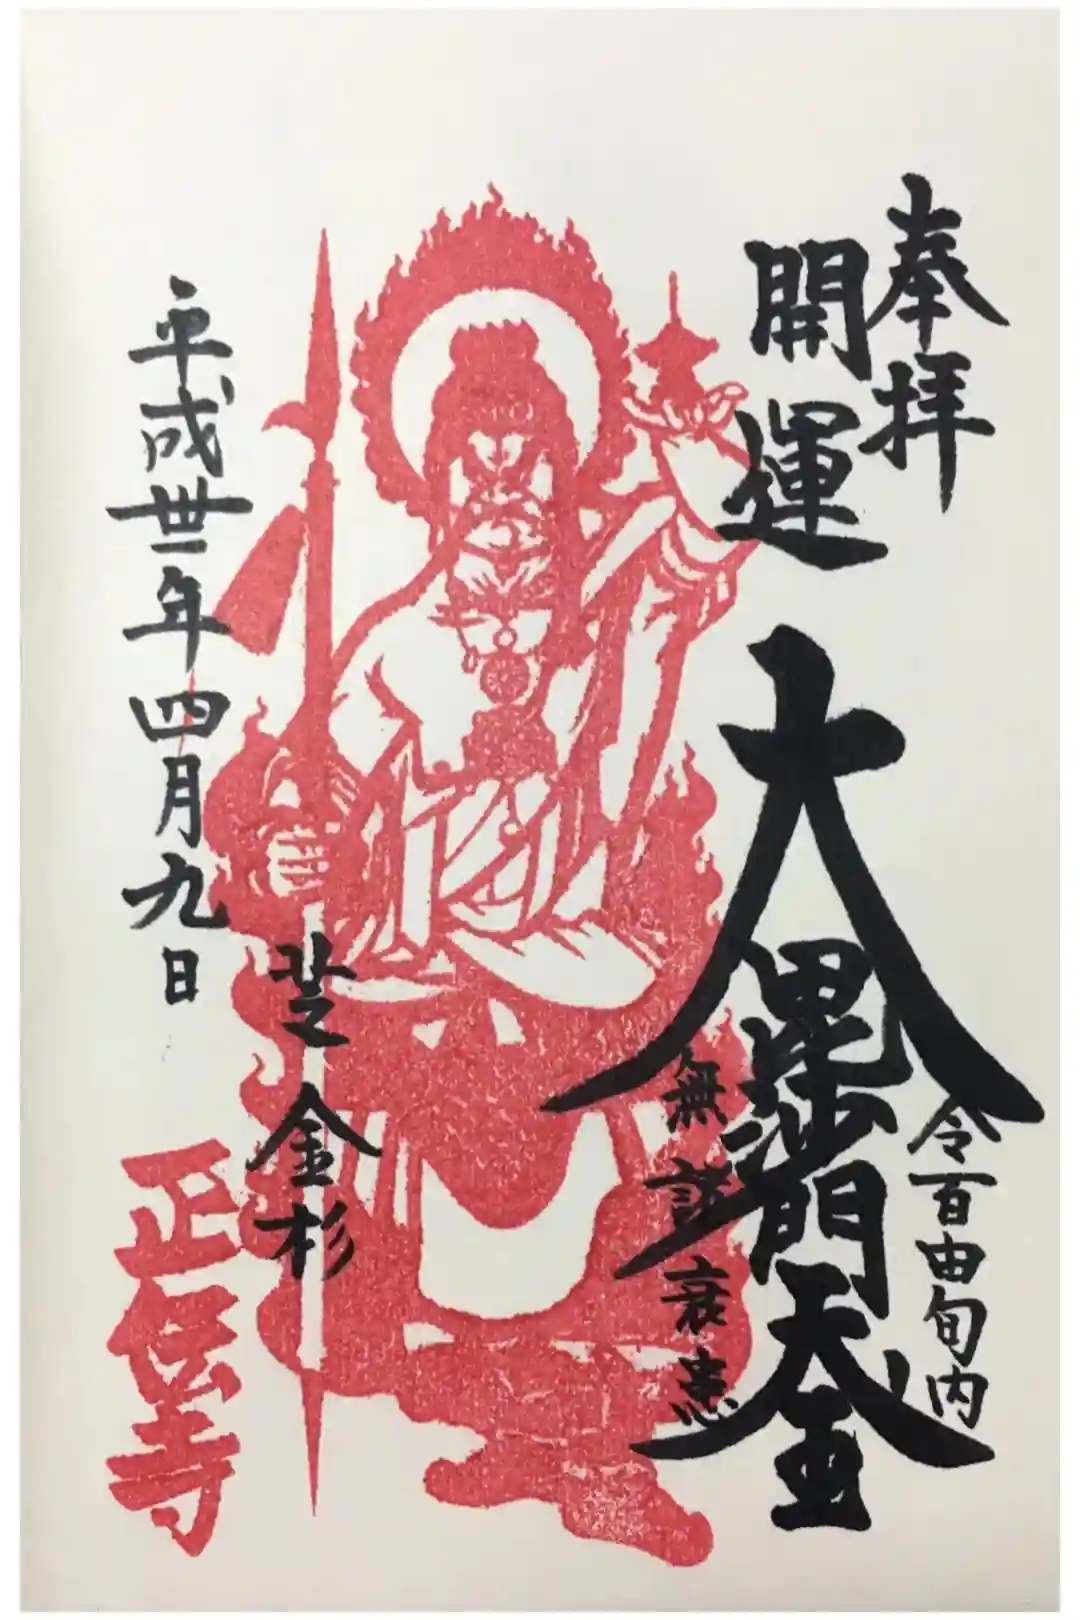 奉拝
開運
大毘沙門天王
令百由旬内
無諸衰患
芝金杉
平成丗一年四月九日
正伝寺